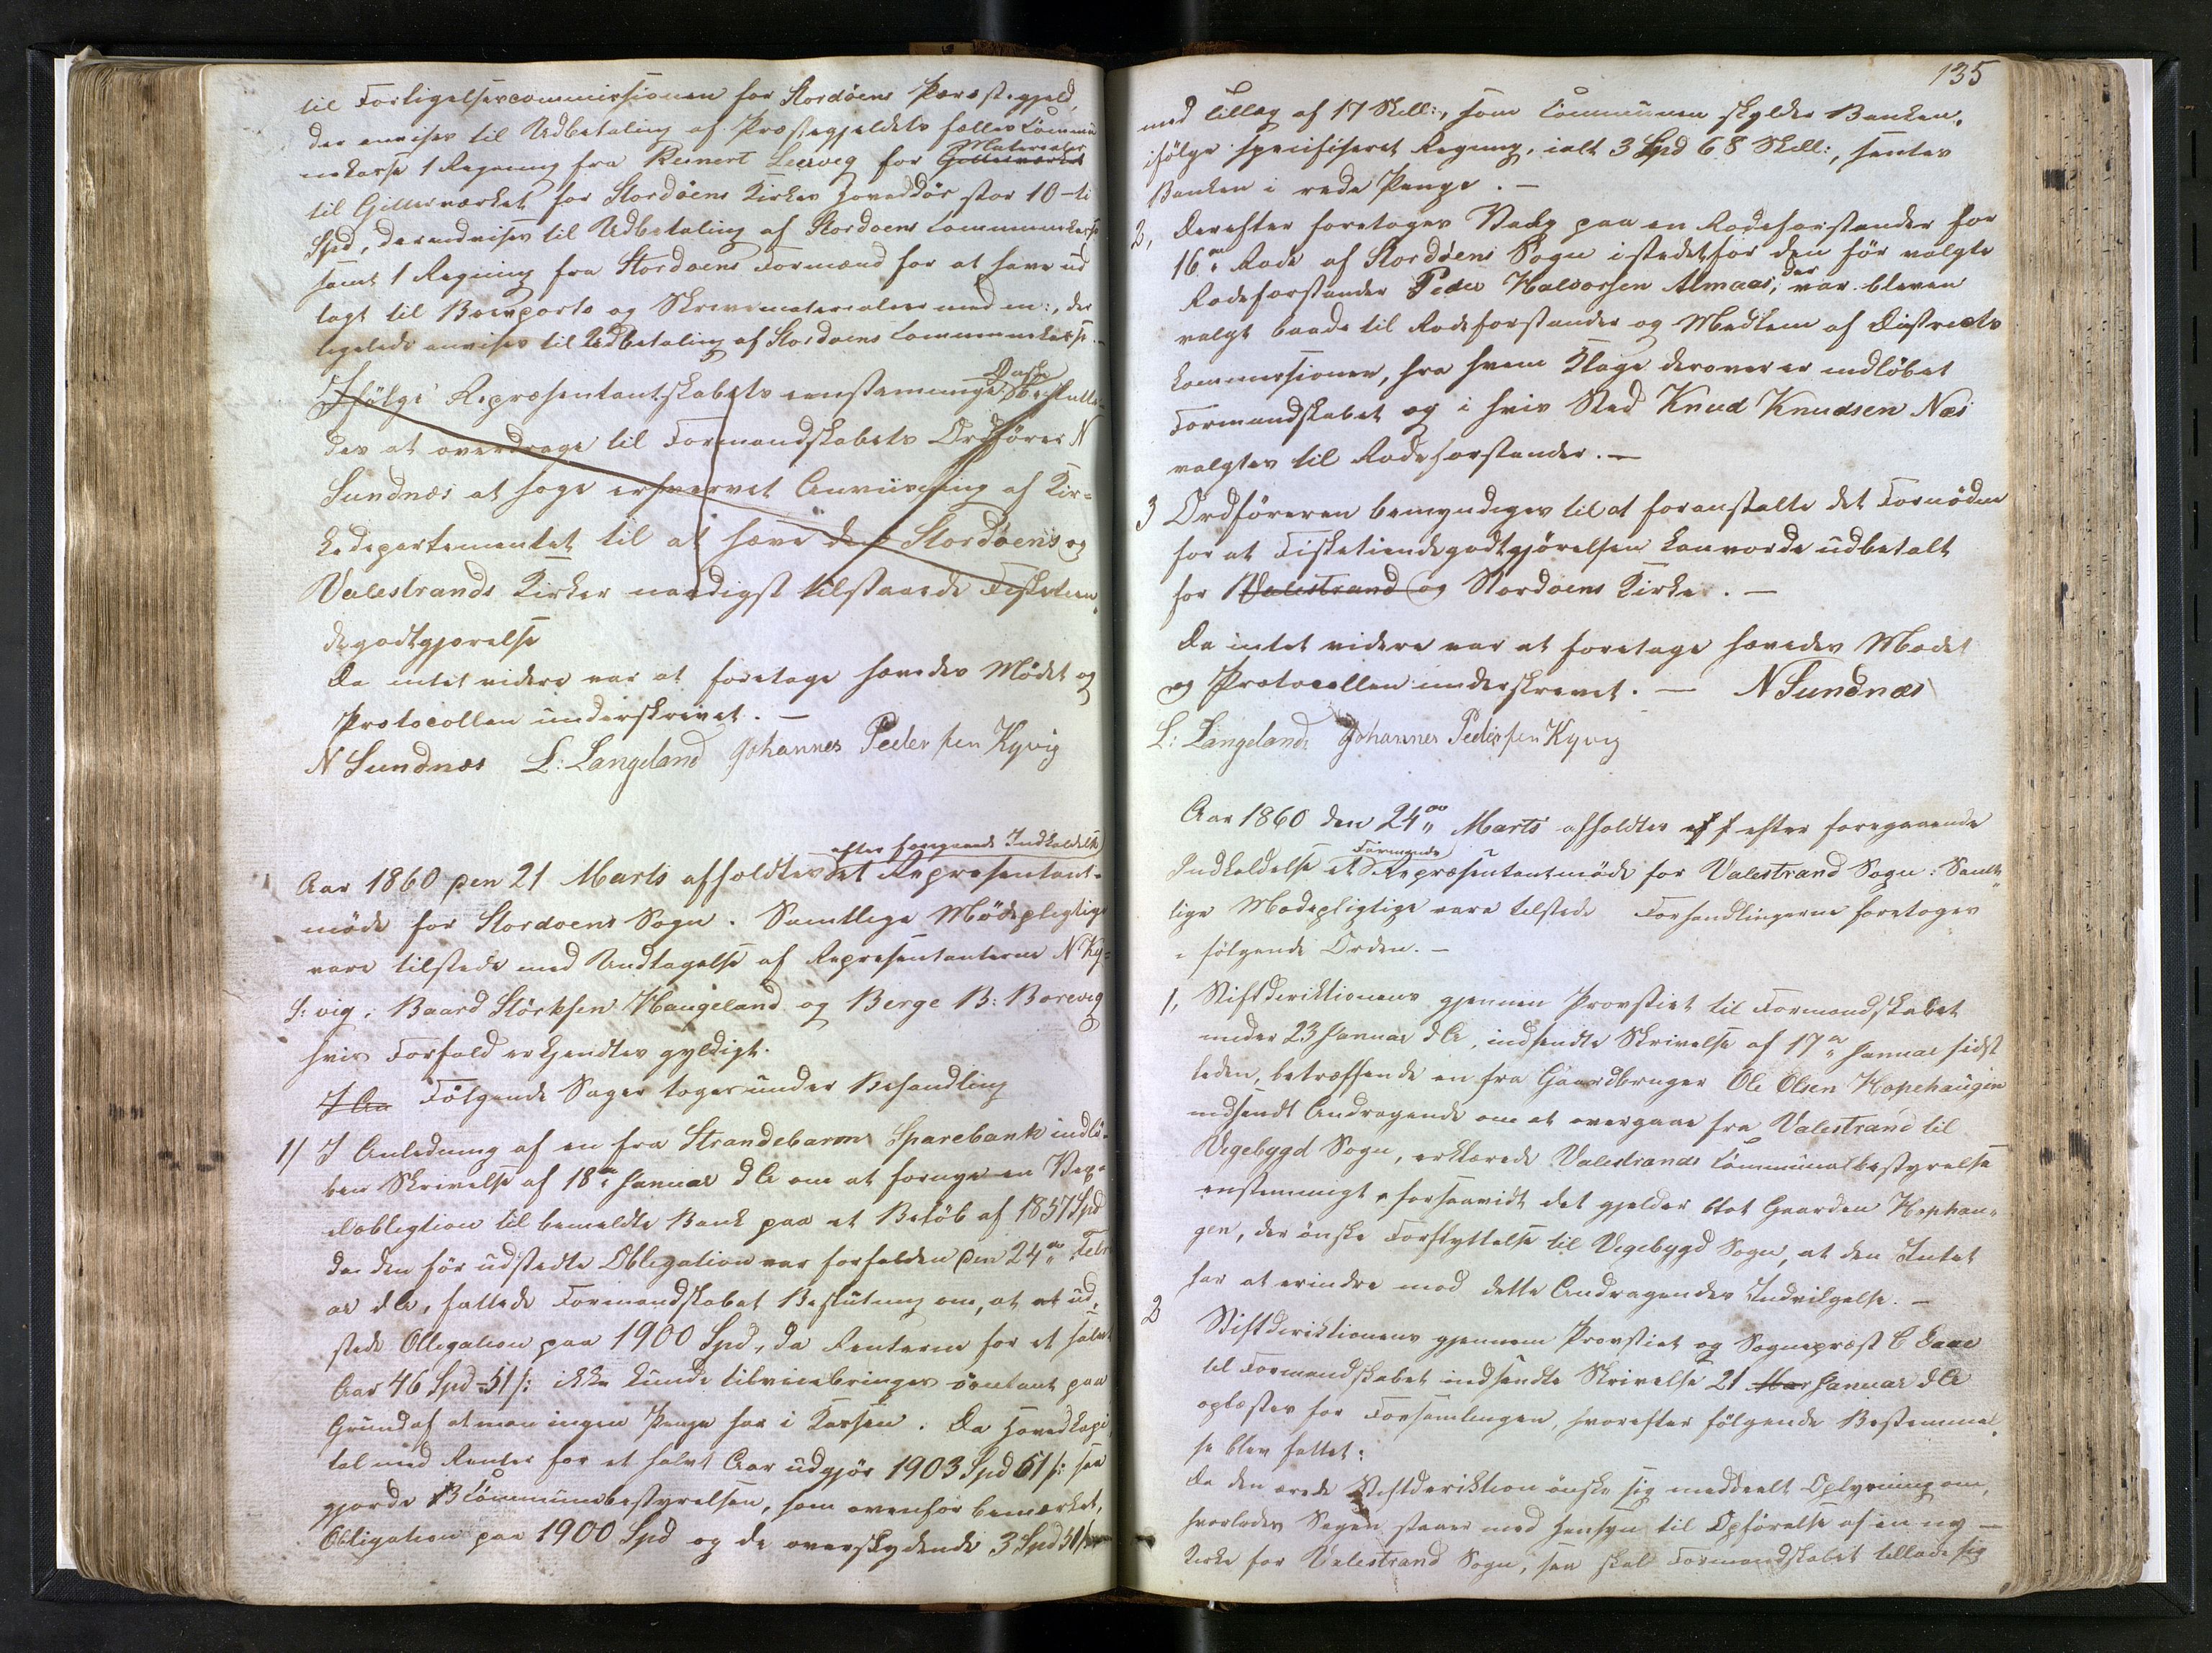 til Forligelsescommissionen for Stordöens Præstegjeld,
der anvises til Udbetaling af Præstegjeldets fælles Commu
nekasse 1 Regning fra Reinert Leervig for Gitterværket Materialer
til Gitterværket for Stordöens Kirkes Hoveddör stor 10 - ti
Spd, der anvises til Udbetaling af Stordoens Communekasse
samt 1 Regning fra Stordoens Formænd for at have ud
lagt til Brevporto og Skrivematerialier med m:, der
ligeledes anvises til Udbetaling af Stordoens Communekasse.-
Ifölge Repræsentantskabets eenstemmige Ønske beslutte-
des at overdrage til Formandskabets Ordförer N
Sundnæs at söge erhvervet Anviisning af Kir-
kedepartementet til at hæve den Stordöens og
Valestrands Kirker naadigst tilstaaede Fisketien
degodtgjörelse
Da intet videre var at foretage hævedes Mödet og
Protocollen underskrevet. -
N Sundnæs L: Langeland Johannes Pedersen Kyvig
Aar 1860 den 21 Marts afholdtes efter foregaaende Indkaldelse et Repræsentant-
möde for Stordoens Sogn. Samtlige Mödepligtige
vare tilstede med Undtagelse af Repræsentanterne N Ky-
vig, Baard Störksen Haugeland og Berge B: Borevig
hvis Forfald erkjendtes gyldigt.
I An Fölgende Sager toges under Behandling
1) I Anledning af en fra Strandebarms Sparebank indlö-
ben Skrivelse af 18de Januar d A om at fornye en Vexe
lobligtion til bemeldte Bank paa et Belöb af 1857 Spd
da den för udstedte Obligation var forfalden den 24de Febr
ar d A, fattede Formandskabet Beslutning om, at at ud,
stede Obligation paa 1900 Spd, da Renterne for et halvt
Aar 46 Spd 51 s: ikke kunde tilveiebringes contant paa
Grund af at man ingen Penge har i Kassen. Da Hovedkapi
tal med Renter for et halvt Aar udgjör 1903 Spd 51 s: saa
gjorde Communebestyrelsen, som ovenfor bemærket,
Obligation paa 1900 Spd og de overskydende 3 Spd 51 s
135
med Tillæg af 17 Skill:, som Communen skylder Banken,
ifölge specificeret Regning, ialt 3 Spd 68 Skill:, sendes
Banken i rede Penge. -
2, Derefter foretoges Valg paa en Rodeforstander for
16de Rode af Stordöens Sogn istedetfor den för valgte
Rodeforstander Peder Halvorsen Almaas, der var bleven
valgt baade til Rodeforstander og Medlem af Districts
kommissionen, fra hvem Klage derover er indlöbet
Formandskabet og i hvis Sted Knud Knudsen Næs
valgtes til Rodeforstander. -
3 Ordföreren bemyndiges til at foranstalte det Fornödne
for at Fisketiendegodtgjörelsen kan vorde udbetalt
for Valestrand og Stordoens Kirke. -
Da intet videre var at foretage hævedes Mödet
og Protocollen underskrevet. - N Sundnæs
L: Langeland Johannes Pedersen Kyvig
Aar 1860 den 24de Marts afholdtes ef f efter foregaaende
Indkaldelse et Formands Repræsentantmöde for Valestrand Sogn: Samt
lige Mödepligtige vare tilstede Forhandlingerne foretoges
i fölgende Orden. -
1, Stiftdirektionens gjennem Provstiet til Formandskabet
under 23 Januar d A, indsendte Skrivelse af 17de Januar sidst
leden, betræffende en fra Gaardbruger Ole Olsen Hopehaugen
indsendt Andragende om at overgaae fra Valestrand til
Vegebygd Sogn, erklærede Valestrands Communalbestyrelse
enstemmigt, forsaavidt det gjelder blot Gaarden Hophau-
gen, der önske Forflyttelse til Vegebygd Sogn, at den Intet
har at erindre mod dette Andragendes Indvilgelse. -
2 Stiftdirektionens gjennem Provstiet og Sognepræst C Daae
til Formandskabet indsendte Skrivelse 21 Mar Januar d A
oplæstes for Forsamlingen, hvorefter fölgende Bestemmel
se blev fattet:
Da den ærede Stiftdirektion önske sig meddeelt Oplysning om,
hvorledes Sagen staaer med Hensyn til Opförelse af en ny -
Kirke for Valestrand Sogn, saa skal Formandskabet tillade sig